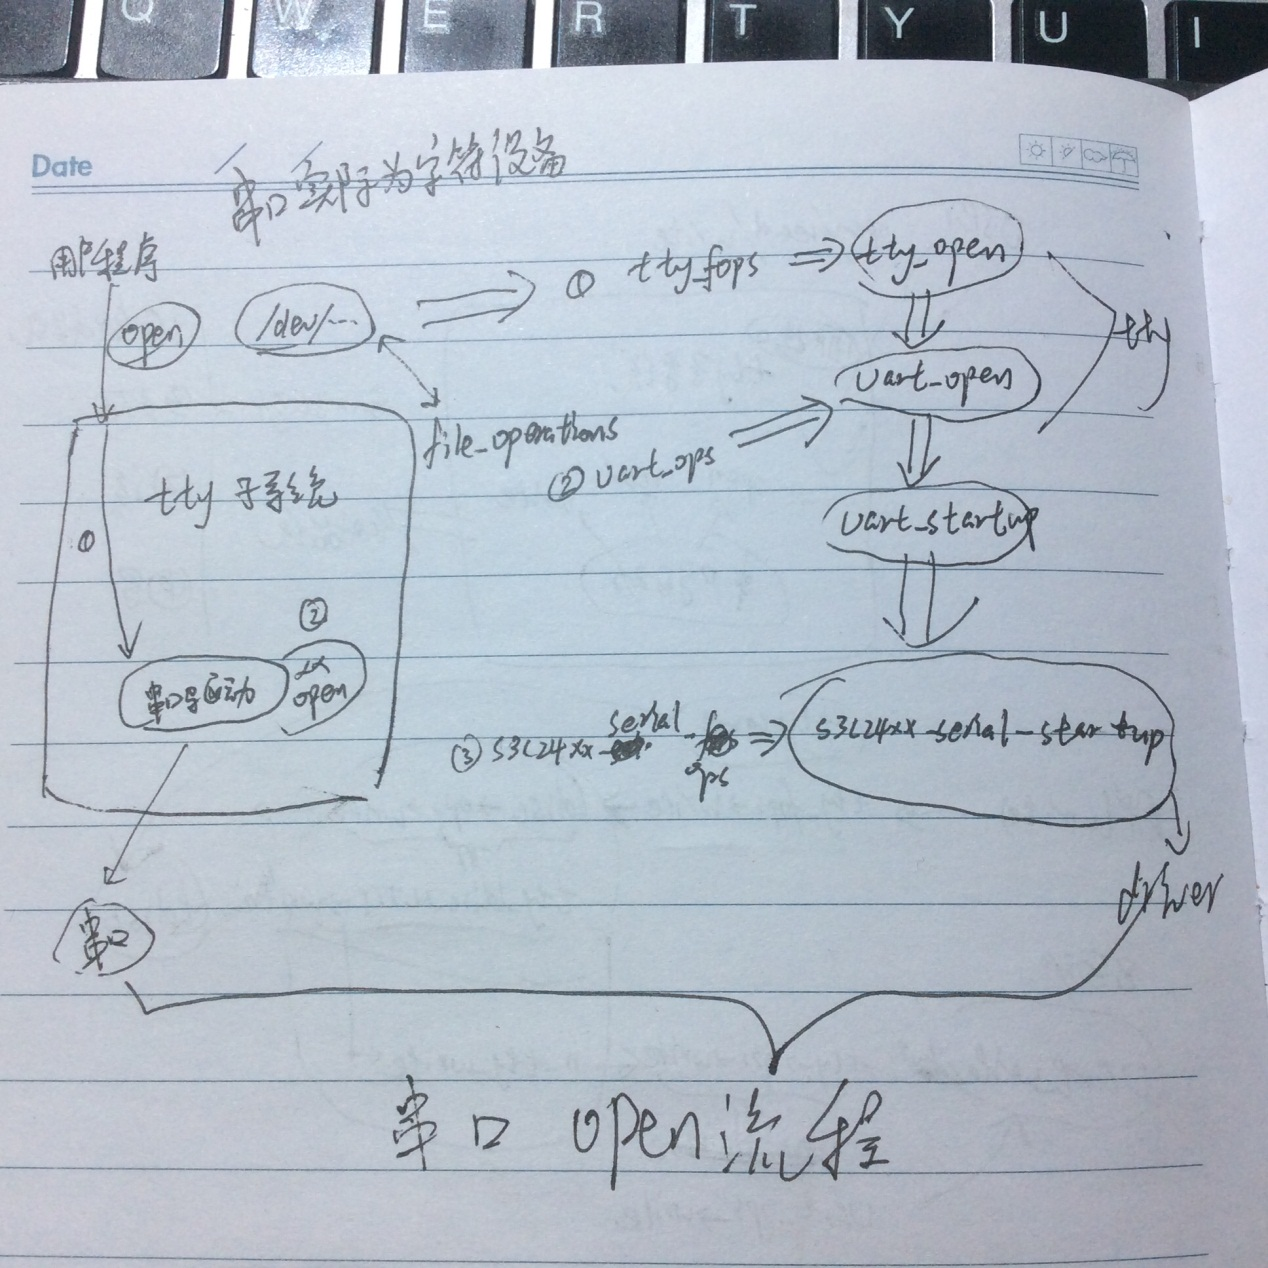 Q W E R T Y U I
Date
串口实际为字符设备
用户程序
open
/dev/...
① tty_fops ⇒ tty_open
tty
uart_open
file_operations
② uart_ops
tty 子系统
①
uart_startup
②
串口导驱动
xx
open
③ s3c24xx-serial-
ops
⇒ s3c24xx-serial-startup
driver
串口
串口 open流程